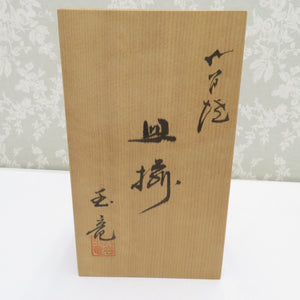 九谷焼
皿揃
玉竜